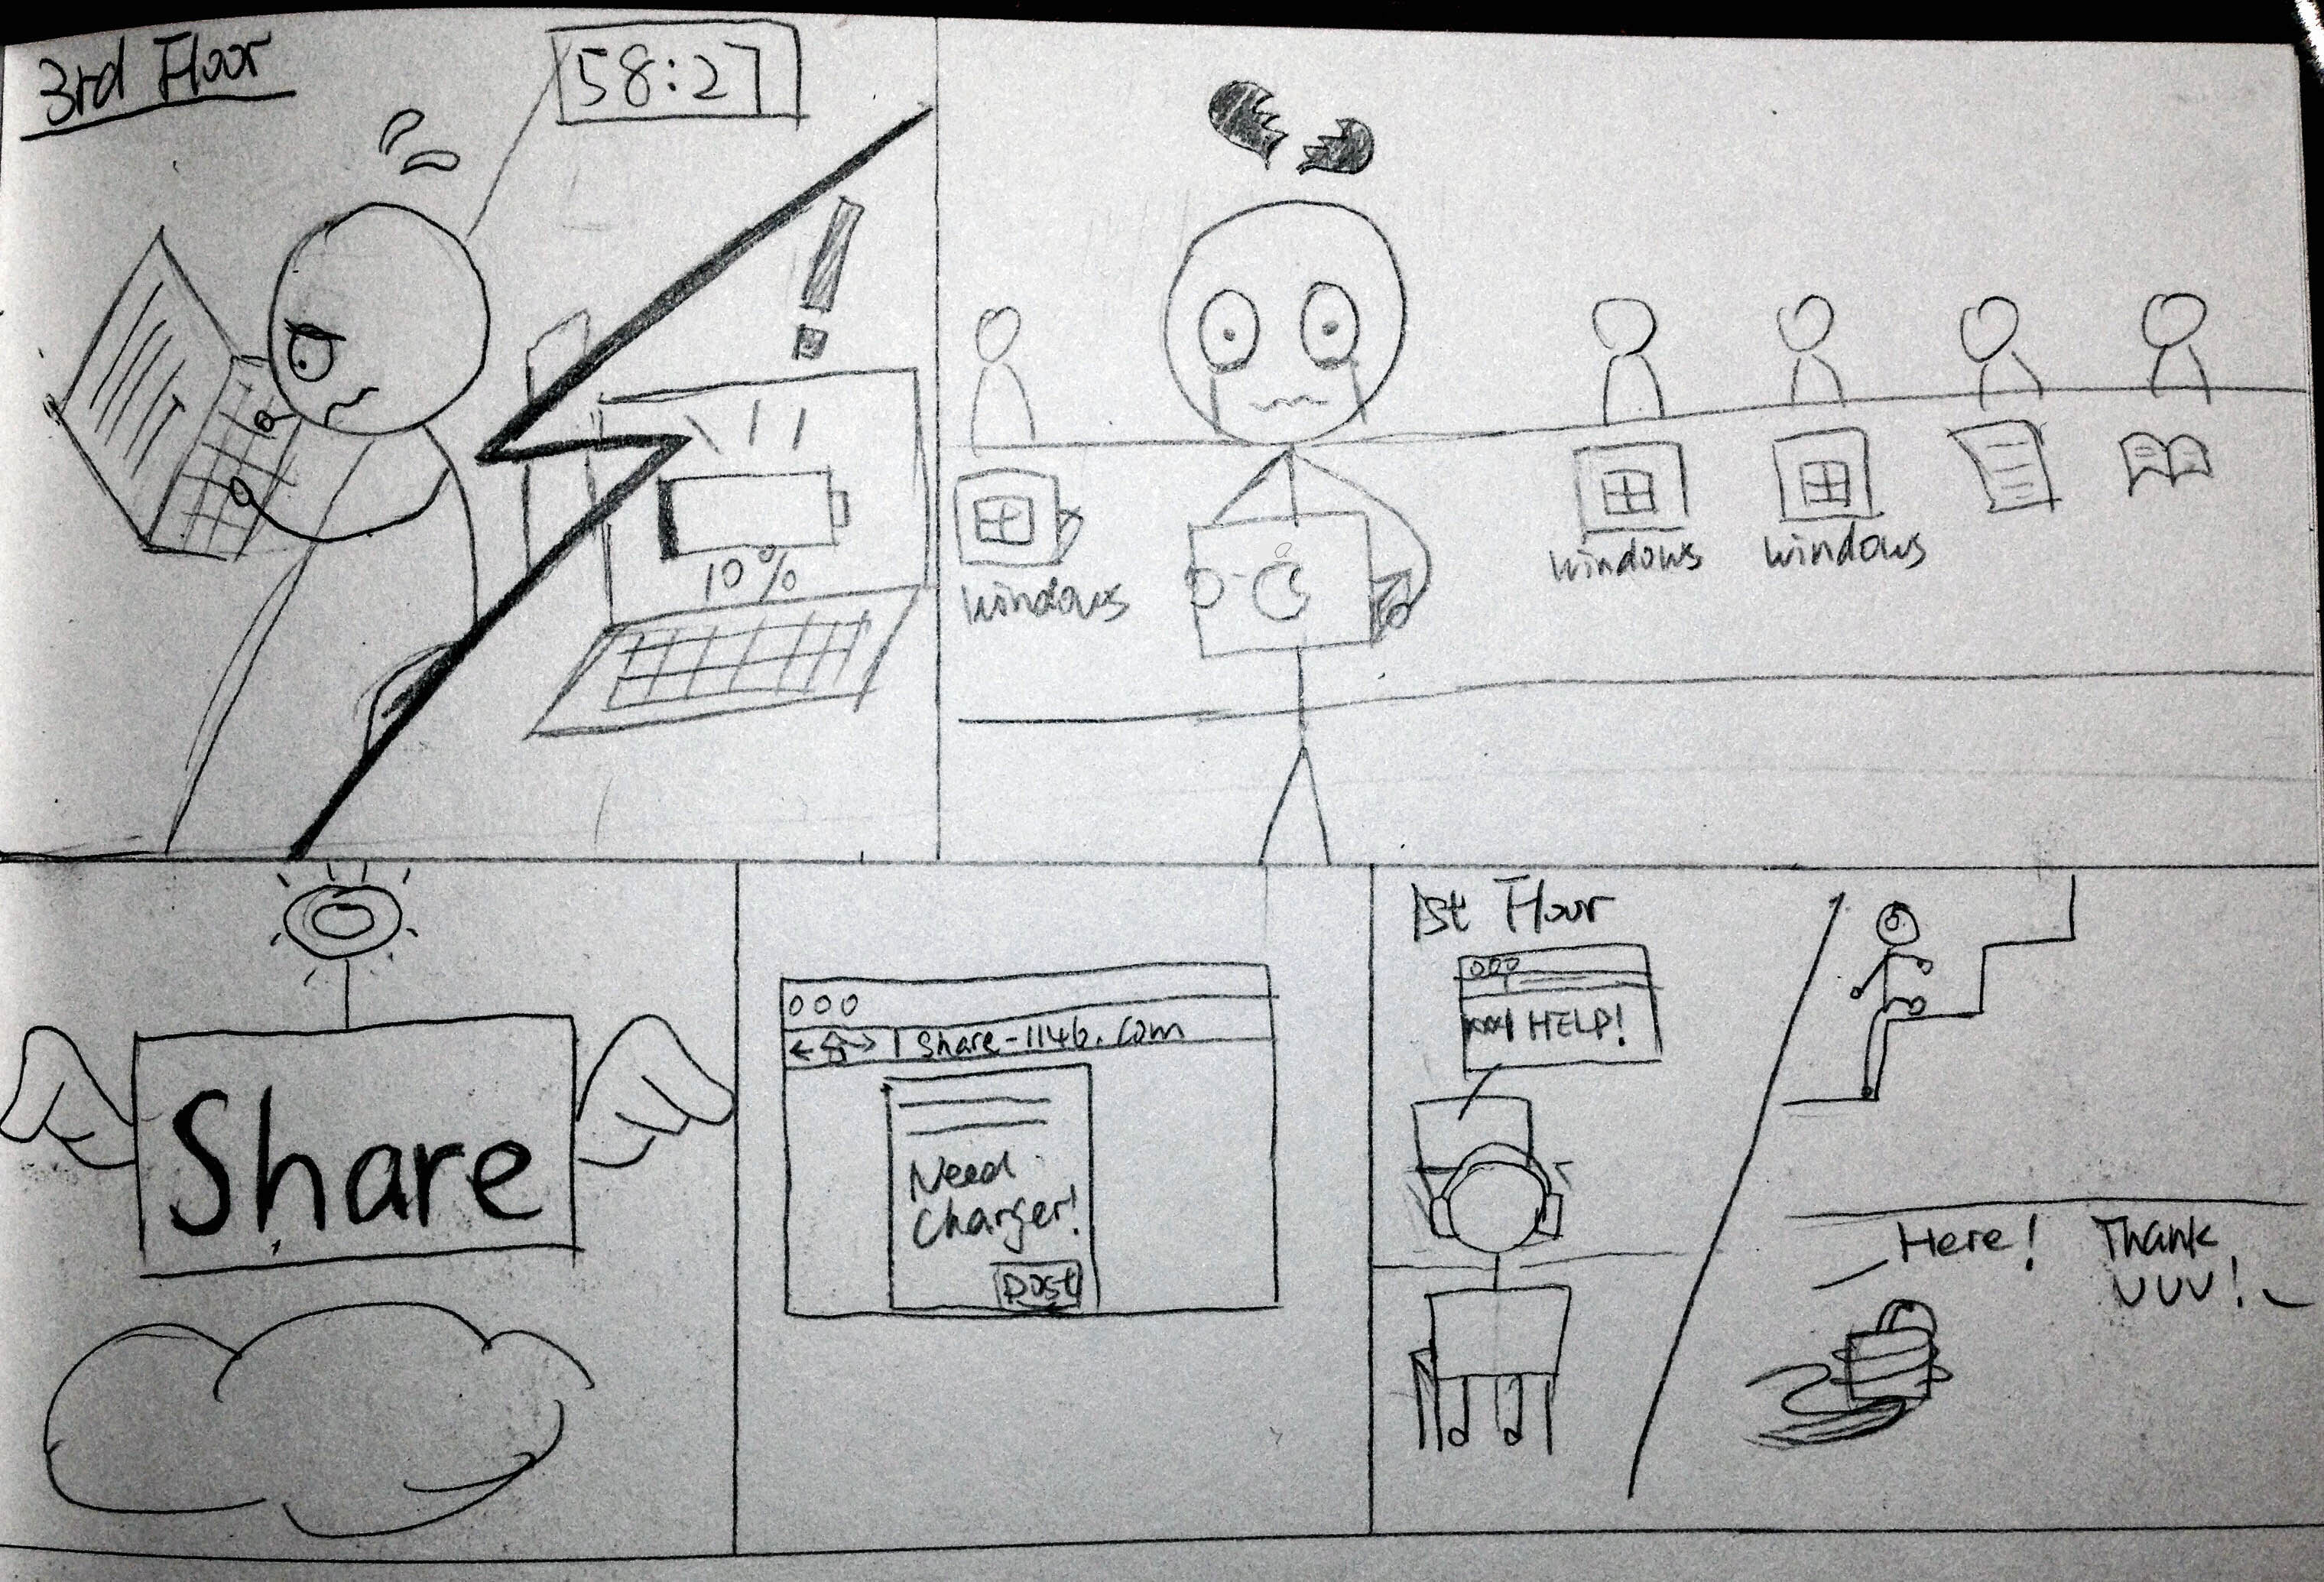 3rd Floor
58:27
10%
windows
windows
windows
Share
share-1146.com
Need
Charger!
Post
1st Floor
HELP!
Here!
Thank
UUU!